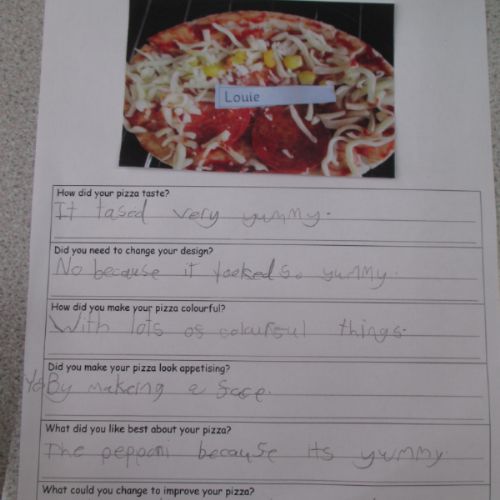 Louie
How did your pizza taste?
It tased very yummy.
Did you need to change your design?
No because it looked so yummy.
How did you make your pizza colourful?
With lots of colourful things.
Did you make your pizza look appetising?
By makeing a face.
What did you like best about your pizza?
The pepponi because its yummy
What could you change to improve your pizza?